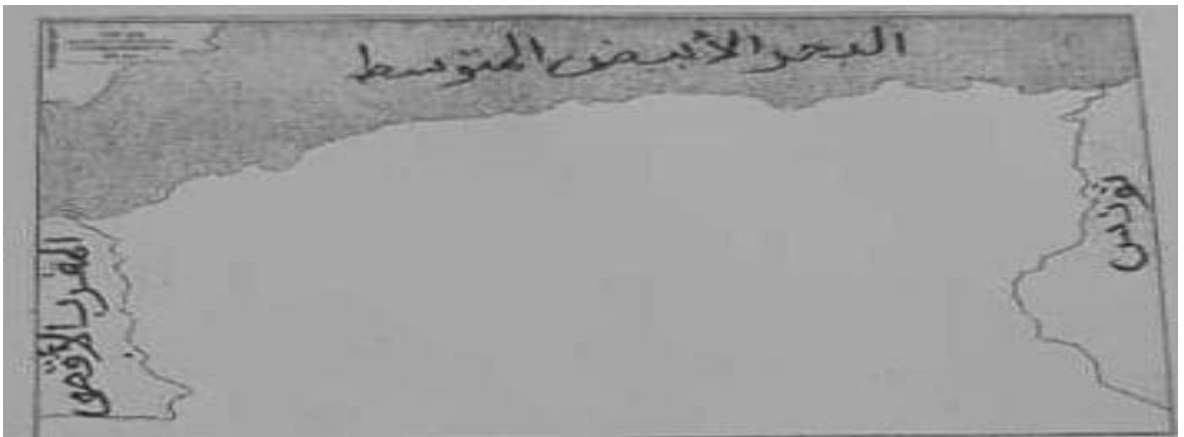 البحر الأبيض المتوسط
تونس
المغرب الأقصى